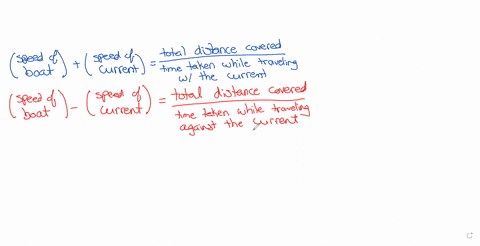 (speed of boat) + (speed of current) = total distance covered / time taken while traveling w/ the current
(speed of boat) - (speed of current) = total distance covered / time taken while traveling against the current